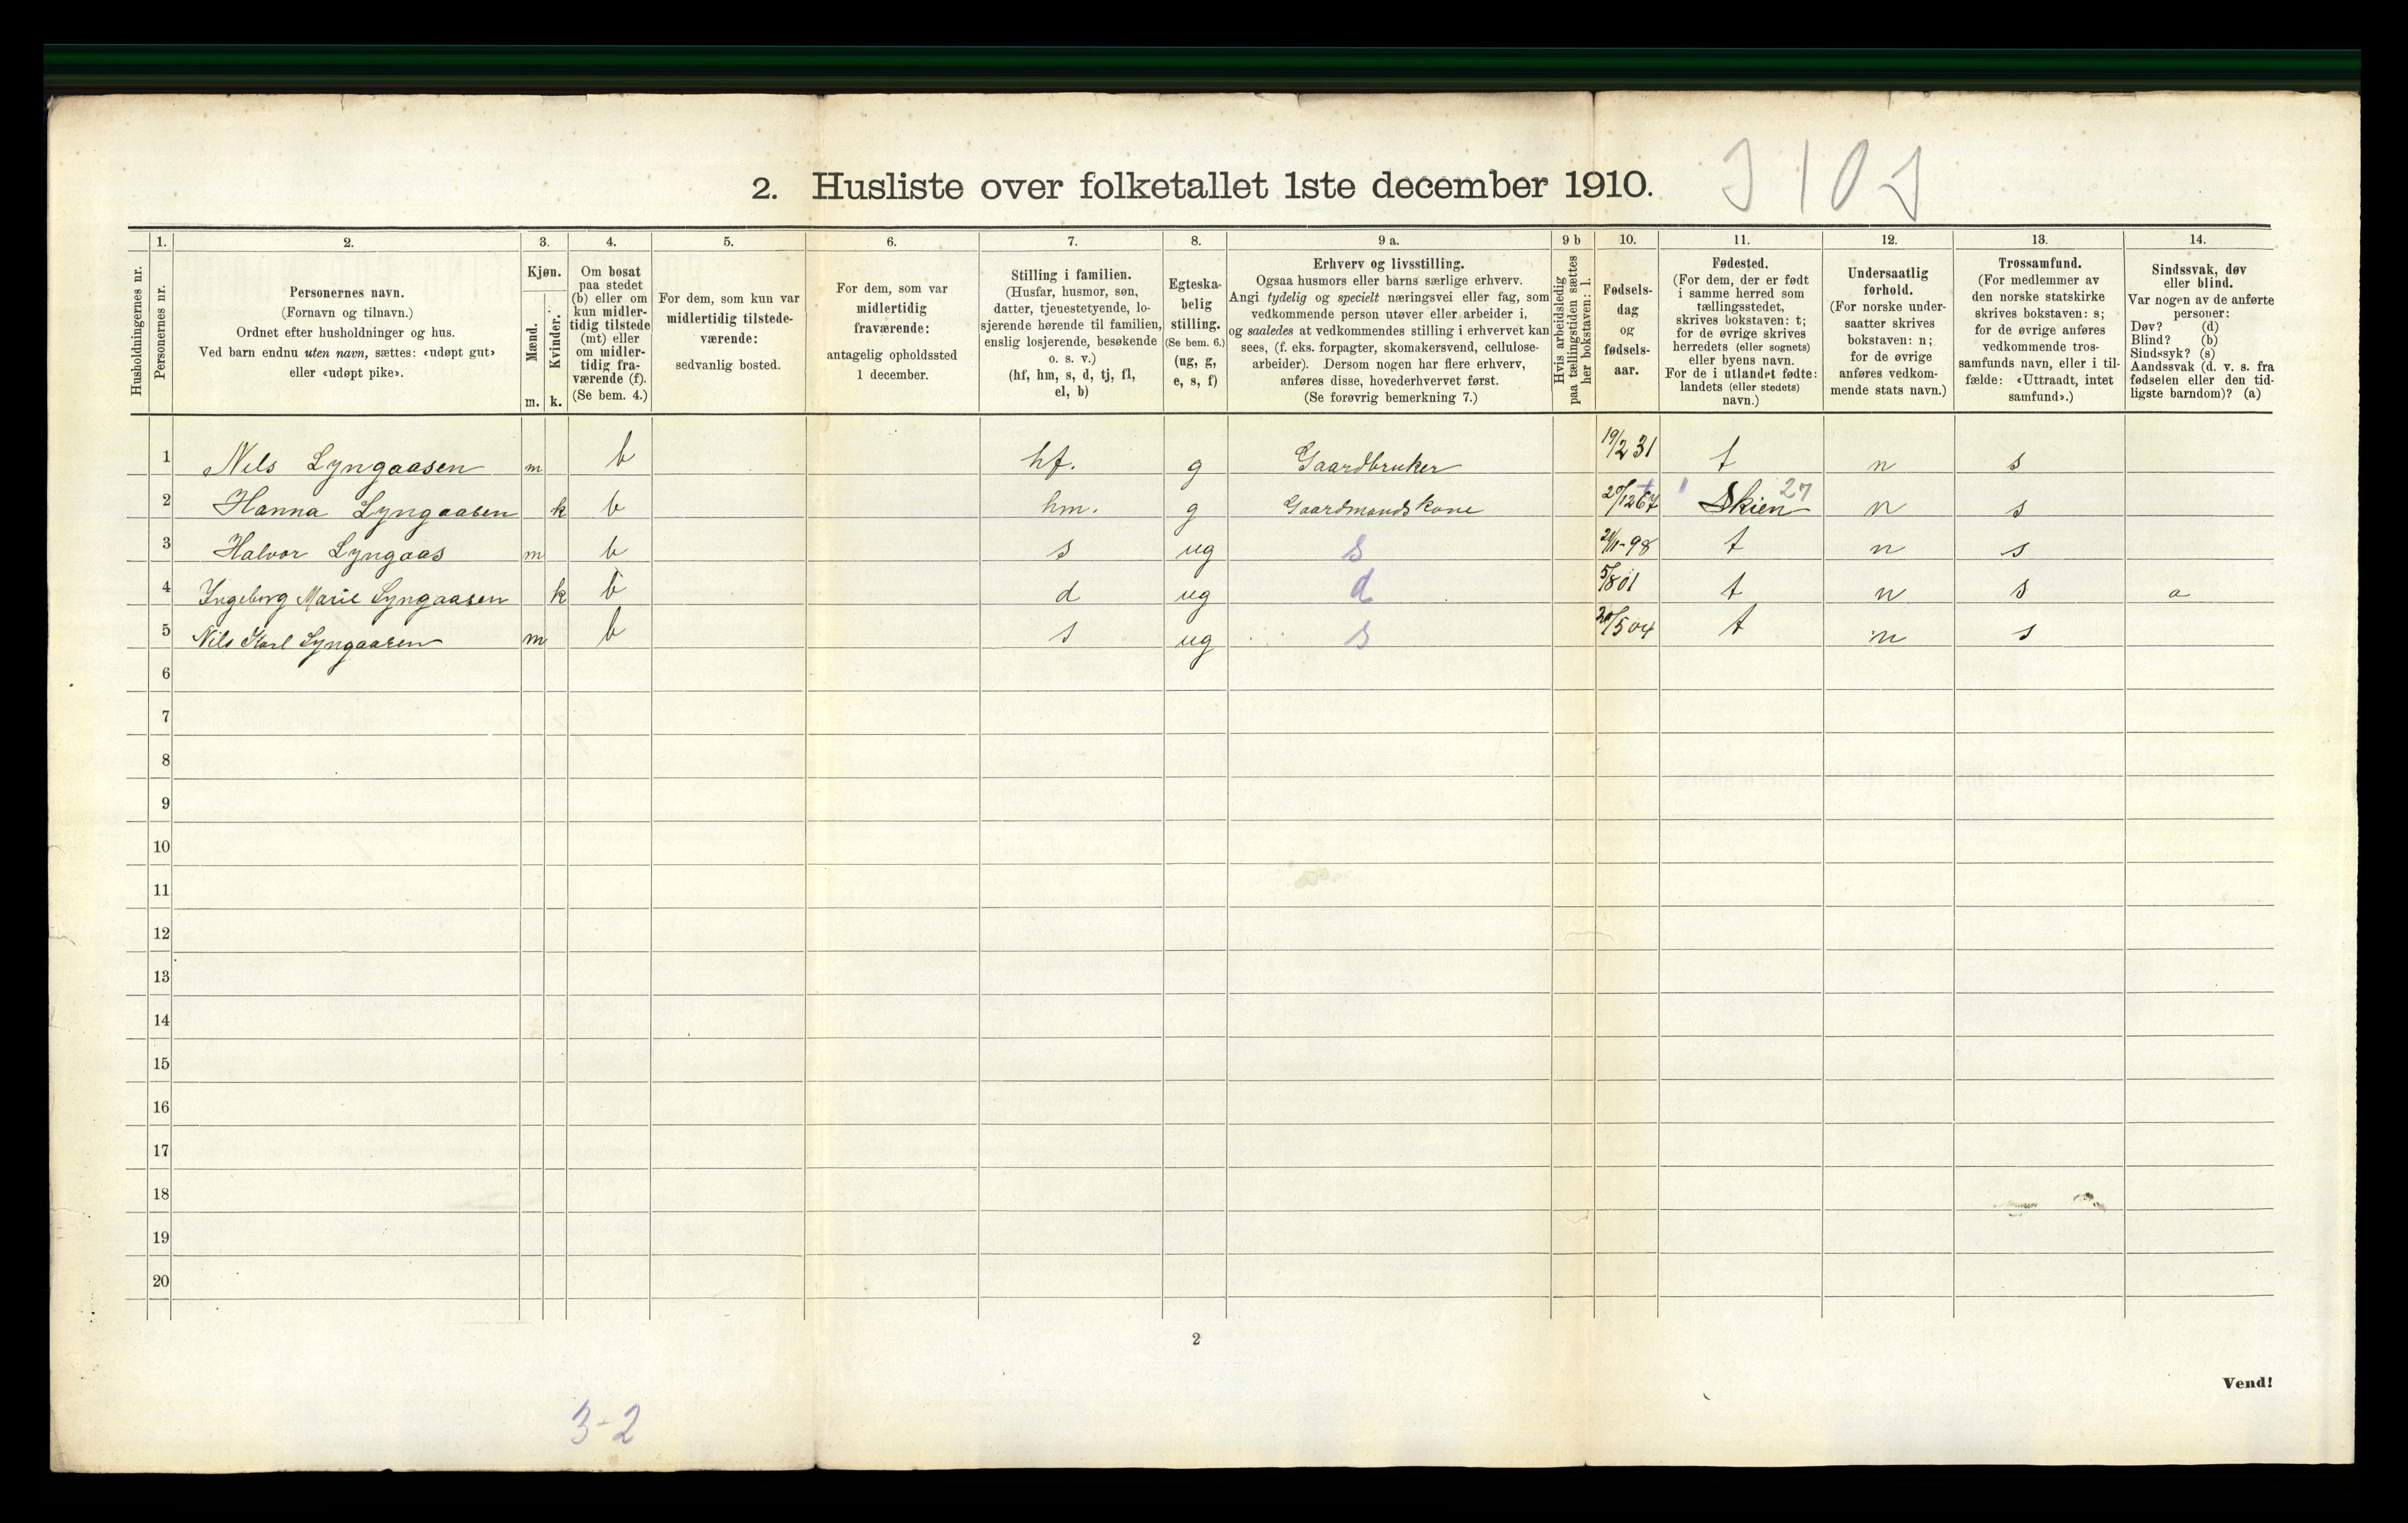 2. Husliste over folketallet 1ste december 1910.
1. 2. 3. 4. 5. 6. 7. 8. 9 a. 9 b 10. 11. 12. 13. 14.
Husholdningernes nr.
Personernes nr.
Personernes navn.
(Fornavn og tilnavn.)
Ordnet efter husholdninger og hus.
Ved barn endnu uten navn, sættes: «udøpt gut»
eller «udøpt pike».
Kjøn.
Mænd.
Kvinder.
m. k.
Om bosat
paa stedet
(b) eller om
kun midler-
tidig tilstede
(mt) eller
om midler-
tidig fra-
værende (f).
(Se bem. 4.)
For dem, som kun var
midlertidig tilstede-
værende:
sedvanlig bosted.
For dem, som var
midlertidig
fraværende:
antagelig opholdssted
1 december.
Stilling i familien.
(Husfar, husmor, søn,
datter, tjenestetyende, lo-
sjerende hørende til familien,
enslig losjerende, besøkende
o. s. v.)
(hf, hm, s, d, tj, fl,
el, b)
Egteska-
belig
stilling.
(Se bem. 6.)
(ug, g,
e, s, f)
Erhverv og livsstilling.
Ogsaa husmors eller barns særlige erhverv.
Angi tydelig og specielt næringsvei eller fag, som
vedkommende person utøver eller arbeider i,
og saaledes at vedkommendes stilling i erhvervet kan
sees, (f. eks. forpagter, skomakersvend, cellulose-
arbeider). Dersom nogen har flere erhverv,
anføres disse, hovederhvervet først.
(Se forøvrig bemerkning 7.)
Hvis arbeidsledig
paa tællingstiden sættes
her bokstaven: l.
Fødsels-
dag
og
fødsels-
aar.
Fødested.
(For dem, der er født
i samme herred som
tællingsstedet,
skrives bokstaven: t;
for de øvrige skrives
herredets (eller sognets)
eller byens navn.
For de i utlandet fødte:
landets (eller stedets)
navn.)
Undersaatlig
forhold.
(For norske under-
saatter skrives
bokstaven: n;
for de øvrige
anføres vedkom-
mende stats navn.)
Trossamfund.
(For medlemmer av
den norske statskirke
skrives bokstaven: s;
for de øvrige anføres
vedkommende tros-
samfunds navn, eller i til-
fælde: «Uttraadt, intet
samfund».)
Sindssvak, døv
eller blind.
Var nogen av de anførte
personer:
Døv? (d)
Blind? (b)
Sindssyk? (s)
Aandssvak (d. v. s. fra
fødselen eller den tid-
ligste barndom)? (a)
1 Nils Lyngaasen m b hf. g Gaardbruker 19/2 31 t n s
2 Hanna Lyngaasen k b hm. g Gaardmandskone 20/12 67 Skien 27 n s
3 Halvor Lyngaas m b s ug s 98 t n s
4 Ingeborg Marie Lyngaasen k b d ug d 5/8 01 t n s a
5 Nils Karl Lyngaasen m b s ug s 20/5 04 t n s
6
7
8
9
10
11
12
13
14
15
16
17
18
19
20
2
Vend!
3-2